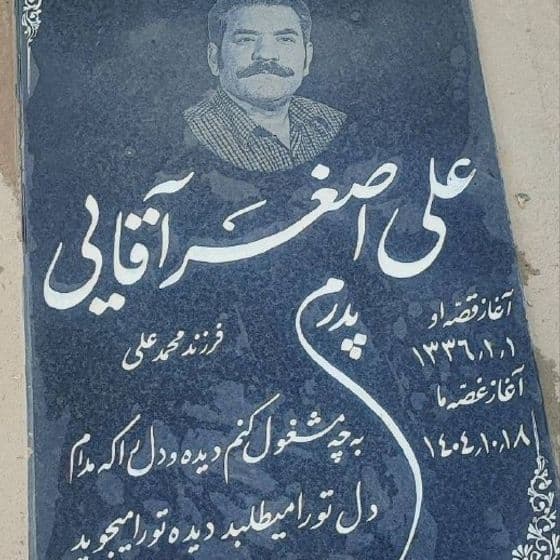 علی اصغر آقایی
پدرم
فرزند محمد علی
آغاز قصّه او
۱۳۳۶٫۱٫۱
آغاز غصّه ما
۱۴۰۴٫۱۰٫۱۸
به چه مشغول کنم دیده و دل را که مدام
دل تو را میطلبد دیده تو را میجوید